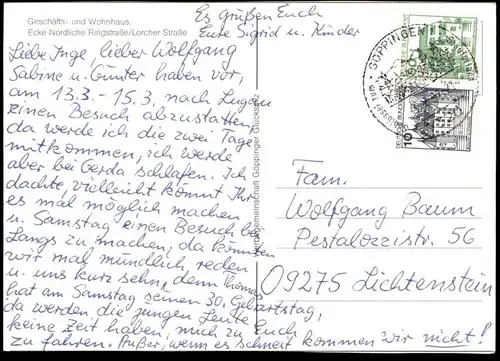 Geschäfts- und Wohnhaus,
Ecke Nördliche Ringstraße/Lorcher Straße
Es grüßen Euch
Eure Sigrid u. Kinder
Liebe Inge, lieber Wolfgang
Sabine u. Günter haben vor,
am 13.3. - 15.3. nach Lugau
einen Besuch abzustatten,
da werde ich die zwei Tage
mitkommen, ich werde
aber bei Gerda schlafen. Ich
dachte, vielleicht könnt Ihr
es mal möglich machen
u. Samstag einen Besuch bei
Langs zu machen, da könnten
wir mal mündlich reden
u. uns kurz sehn, denn Thomas
hat am Samstag seinen 30. Geburtstag,
da werden die jungen Leute
keine Zeit haben, mich zu Euch
zu fahren. Außer, wenn es schneit kommen wir nicht!
gemeinschaft Göppinger Glücksnetz
GÖPPINGEN
10
Fam.
Wolfgang Baum
Pestalozzistr. 56
09275 Lichtenstein